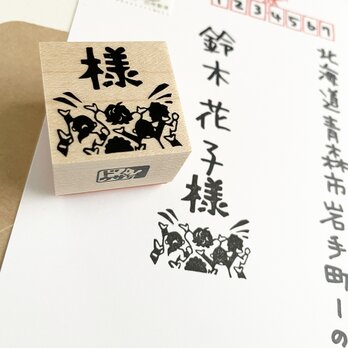 1234567
北海道青森市岩手町1の
鈴木花子様
様